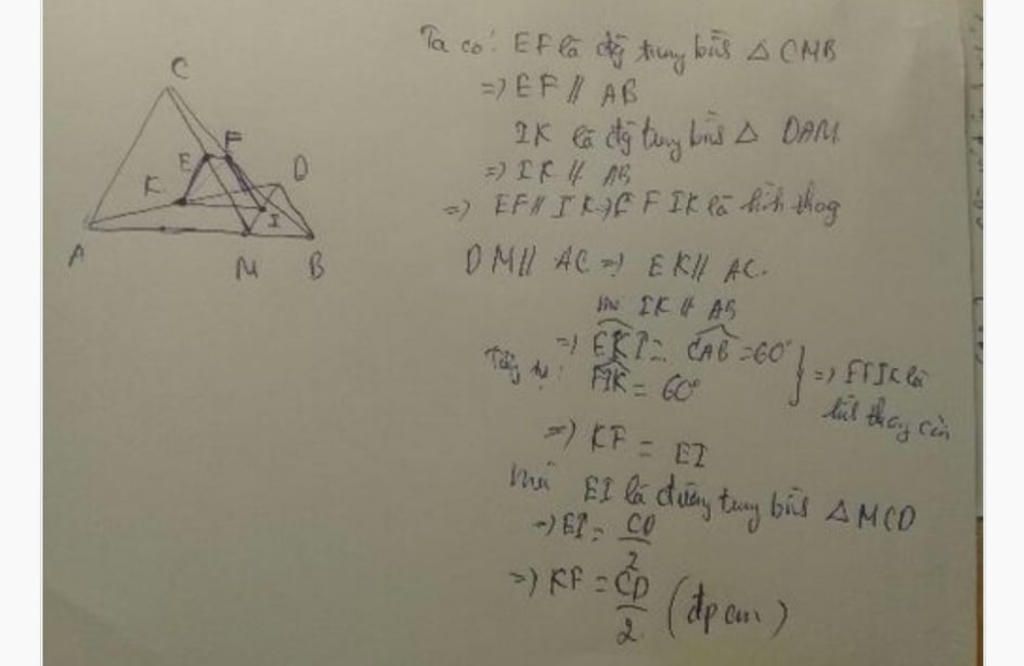 C
F
E
D
K
I
A
M
B
Ta có: EF là đg trung bình △ CMB
=> EF // AB
IK là đg trung bình △ DAM
=> IK // AB
=> EF // IK => EFIK là hình thang
DM // AC => EK // AC.
mà IK // AB
=> EKI = CAB = 60°
Tương tự: FIK = 60°
} => EFIK là
hình thang cân
=> KF = EI
mà EI là đường trung bình △ MCD
=> EI = CD/2
=> KF = CD/2 (đpcm)